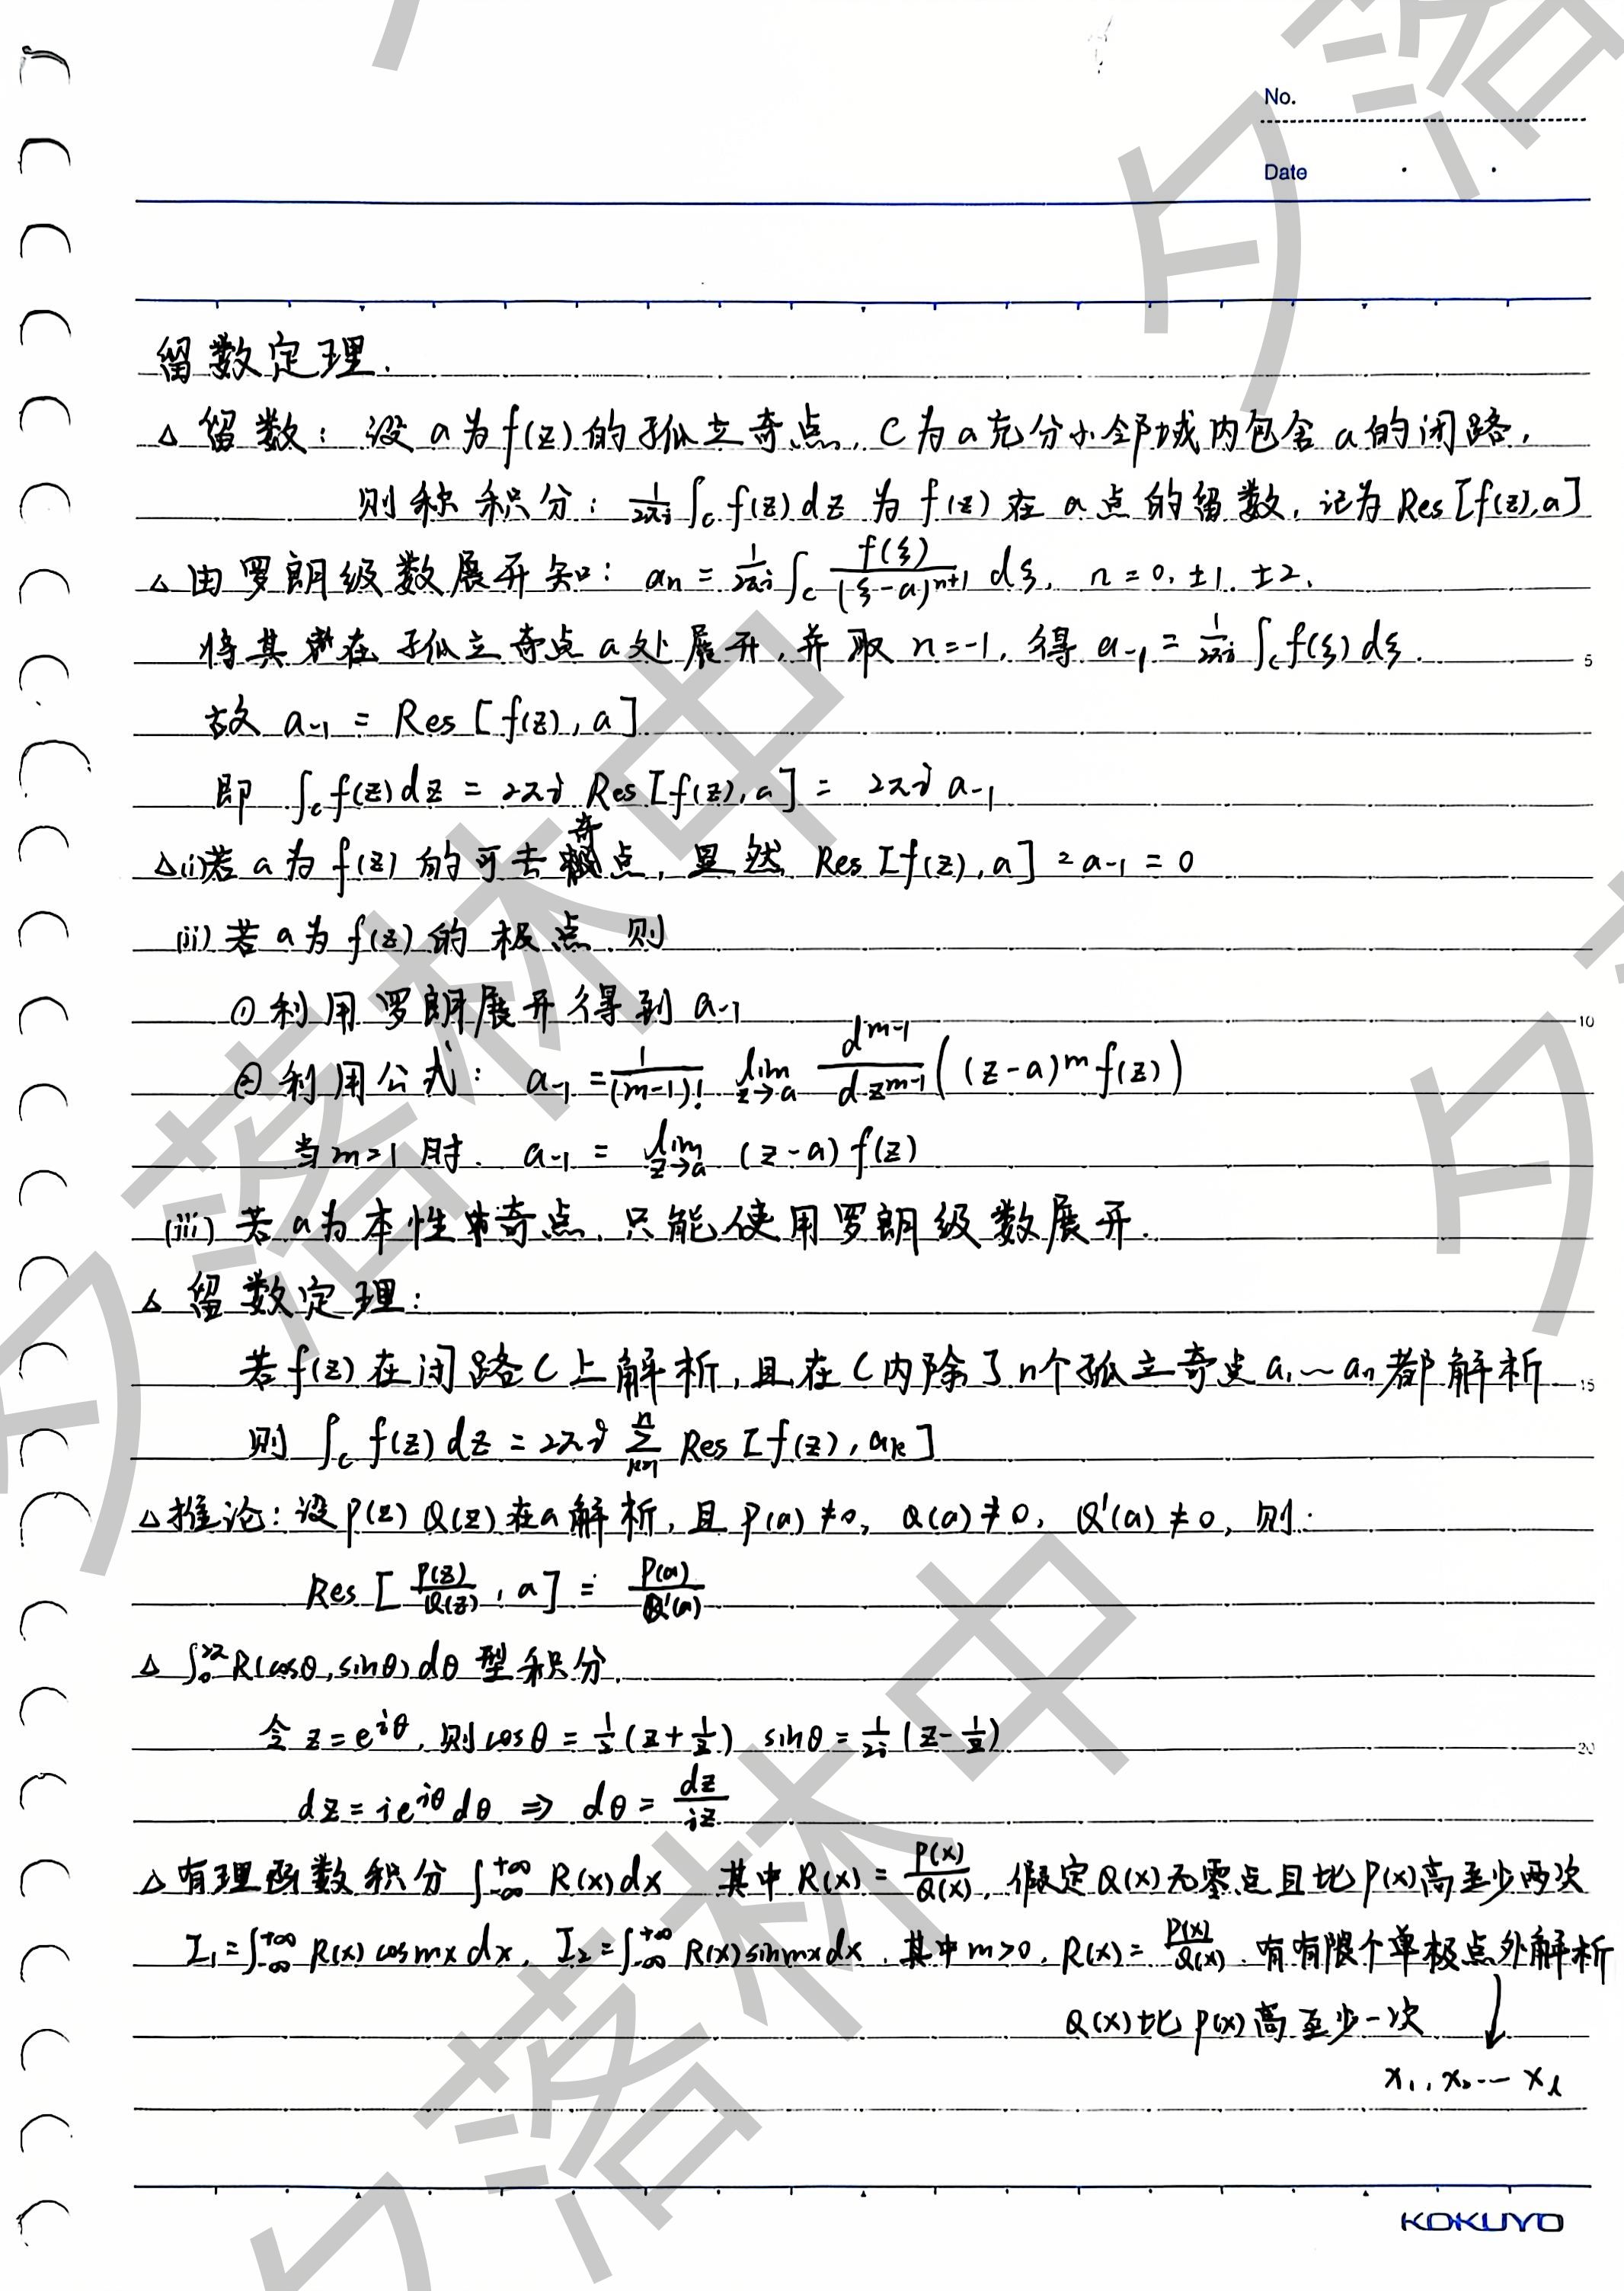 No.
Date
留数定理.
△ 留数: 设 a 为 f(z) 的孤立奇点, C 为 a 充分小邻域内包含 a 的闭路,
则称积分: \frac{1}{2πi} ∫_C f(z) dz 为 f(z) 在 a 点的留数, 记为 Res [f(z), a]
△ 由罗朗级数展开知: a_n = \frac{1}{2πi} ∫_C \frac{f(ξ)}{(ξ-a)^{n+1}} dξ, n = 0, ±1, ±2,
将其在孤立奇点 a 处展开, 并取 n = -1, 得 a_{-1} = \frac{1}{2πi} ∫_C f(ξ) dξ.
故 a_{-1} = Res [f(z), a]
即 ∫_C f(z) dz = 2πi Res [f(z), a] = 2πi a_{-1}
△ (i) 若 a 为 f(z) 的可去奇点, 显然 Res [f(z), a] = a_{-1} = 0
(ii) 若 a 为 f(z) 的极点 则
① 利用罗朗展开得到 a_{-1}
② 利用公式: a_{-1} = \frac{1}{(m-1)!} \lim_{z→a} \frac{d^{m-1}}{dz^{m-1}} ((z-a)^m f(z))
当 m=1 时. a_{-1} = \lim_{z→a} (z-a) f(z)
(iii) 若 a 为本性奇点, 只能使用罗朗级数展开.
△ 留数定理:
若 f(z) 在闭路 C 上解析, 且在 C 内除了 n 个孤立奇点 a_1 ~ a_n 都解析
则 ∫_C f(z) dz = 2πi \sum_{k=1}^{n} Res [f(z), a_k]
△ 推论: 设 P(z) Q(z) 在 a 解析, 且 P(a) ≠ 0, Q(a) ≠ 0, Q'(a) ≠ 0, 则:
Res [\frac{P(z)}{Q(z)}, a] = \frac{P(a)}{Q'(a)}
△ ∫_0^{2π} R(cosθ, sinθ) dθ 型积分.
令 z = e^{iθ}, 则 cosθ = \frac{1}{2} (z + \frac{1}{z}) sinθ = \frac{1}{2i} (z - \frac{1}{z})
dz = i e^{iθ} dθ ⇒ dθ = \frac{dz}{iz}
△ 有理函数积分 ∫_{-∞}^{+∞} R(x) dx 其中 R(x) = \frac{P(x)}{Q(x)}, 假定 Q(x) 无零点且比 P(x) 高至少两次
I_1 = ∫_{-∞}^{+∞} R(x) cosmx dx, I_2 = ∫_{-∞}^{+∞} R(x) sinmx dx, 其中 m>0, R(x) = \frac{P(x)}{Q(x)}. 有有限个单极点外解析
Q(x) 比 P(x) 高至少一次 ↓
x_1, x_2 ... x_l
5
10
15
20
KOKUYO
夕落林中
夕落林中
夕落
夕落